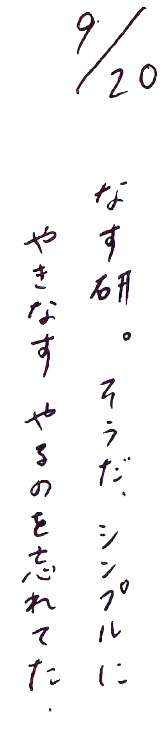 9/20
なす研。そうだ、シンプルに
やきなす やるのを忘れてた.